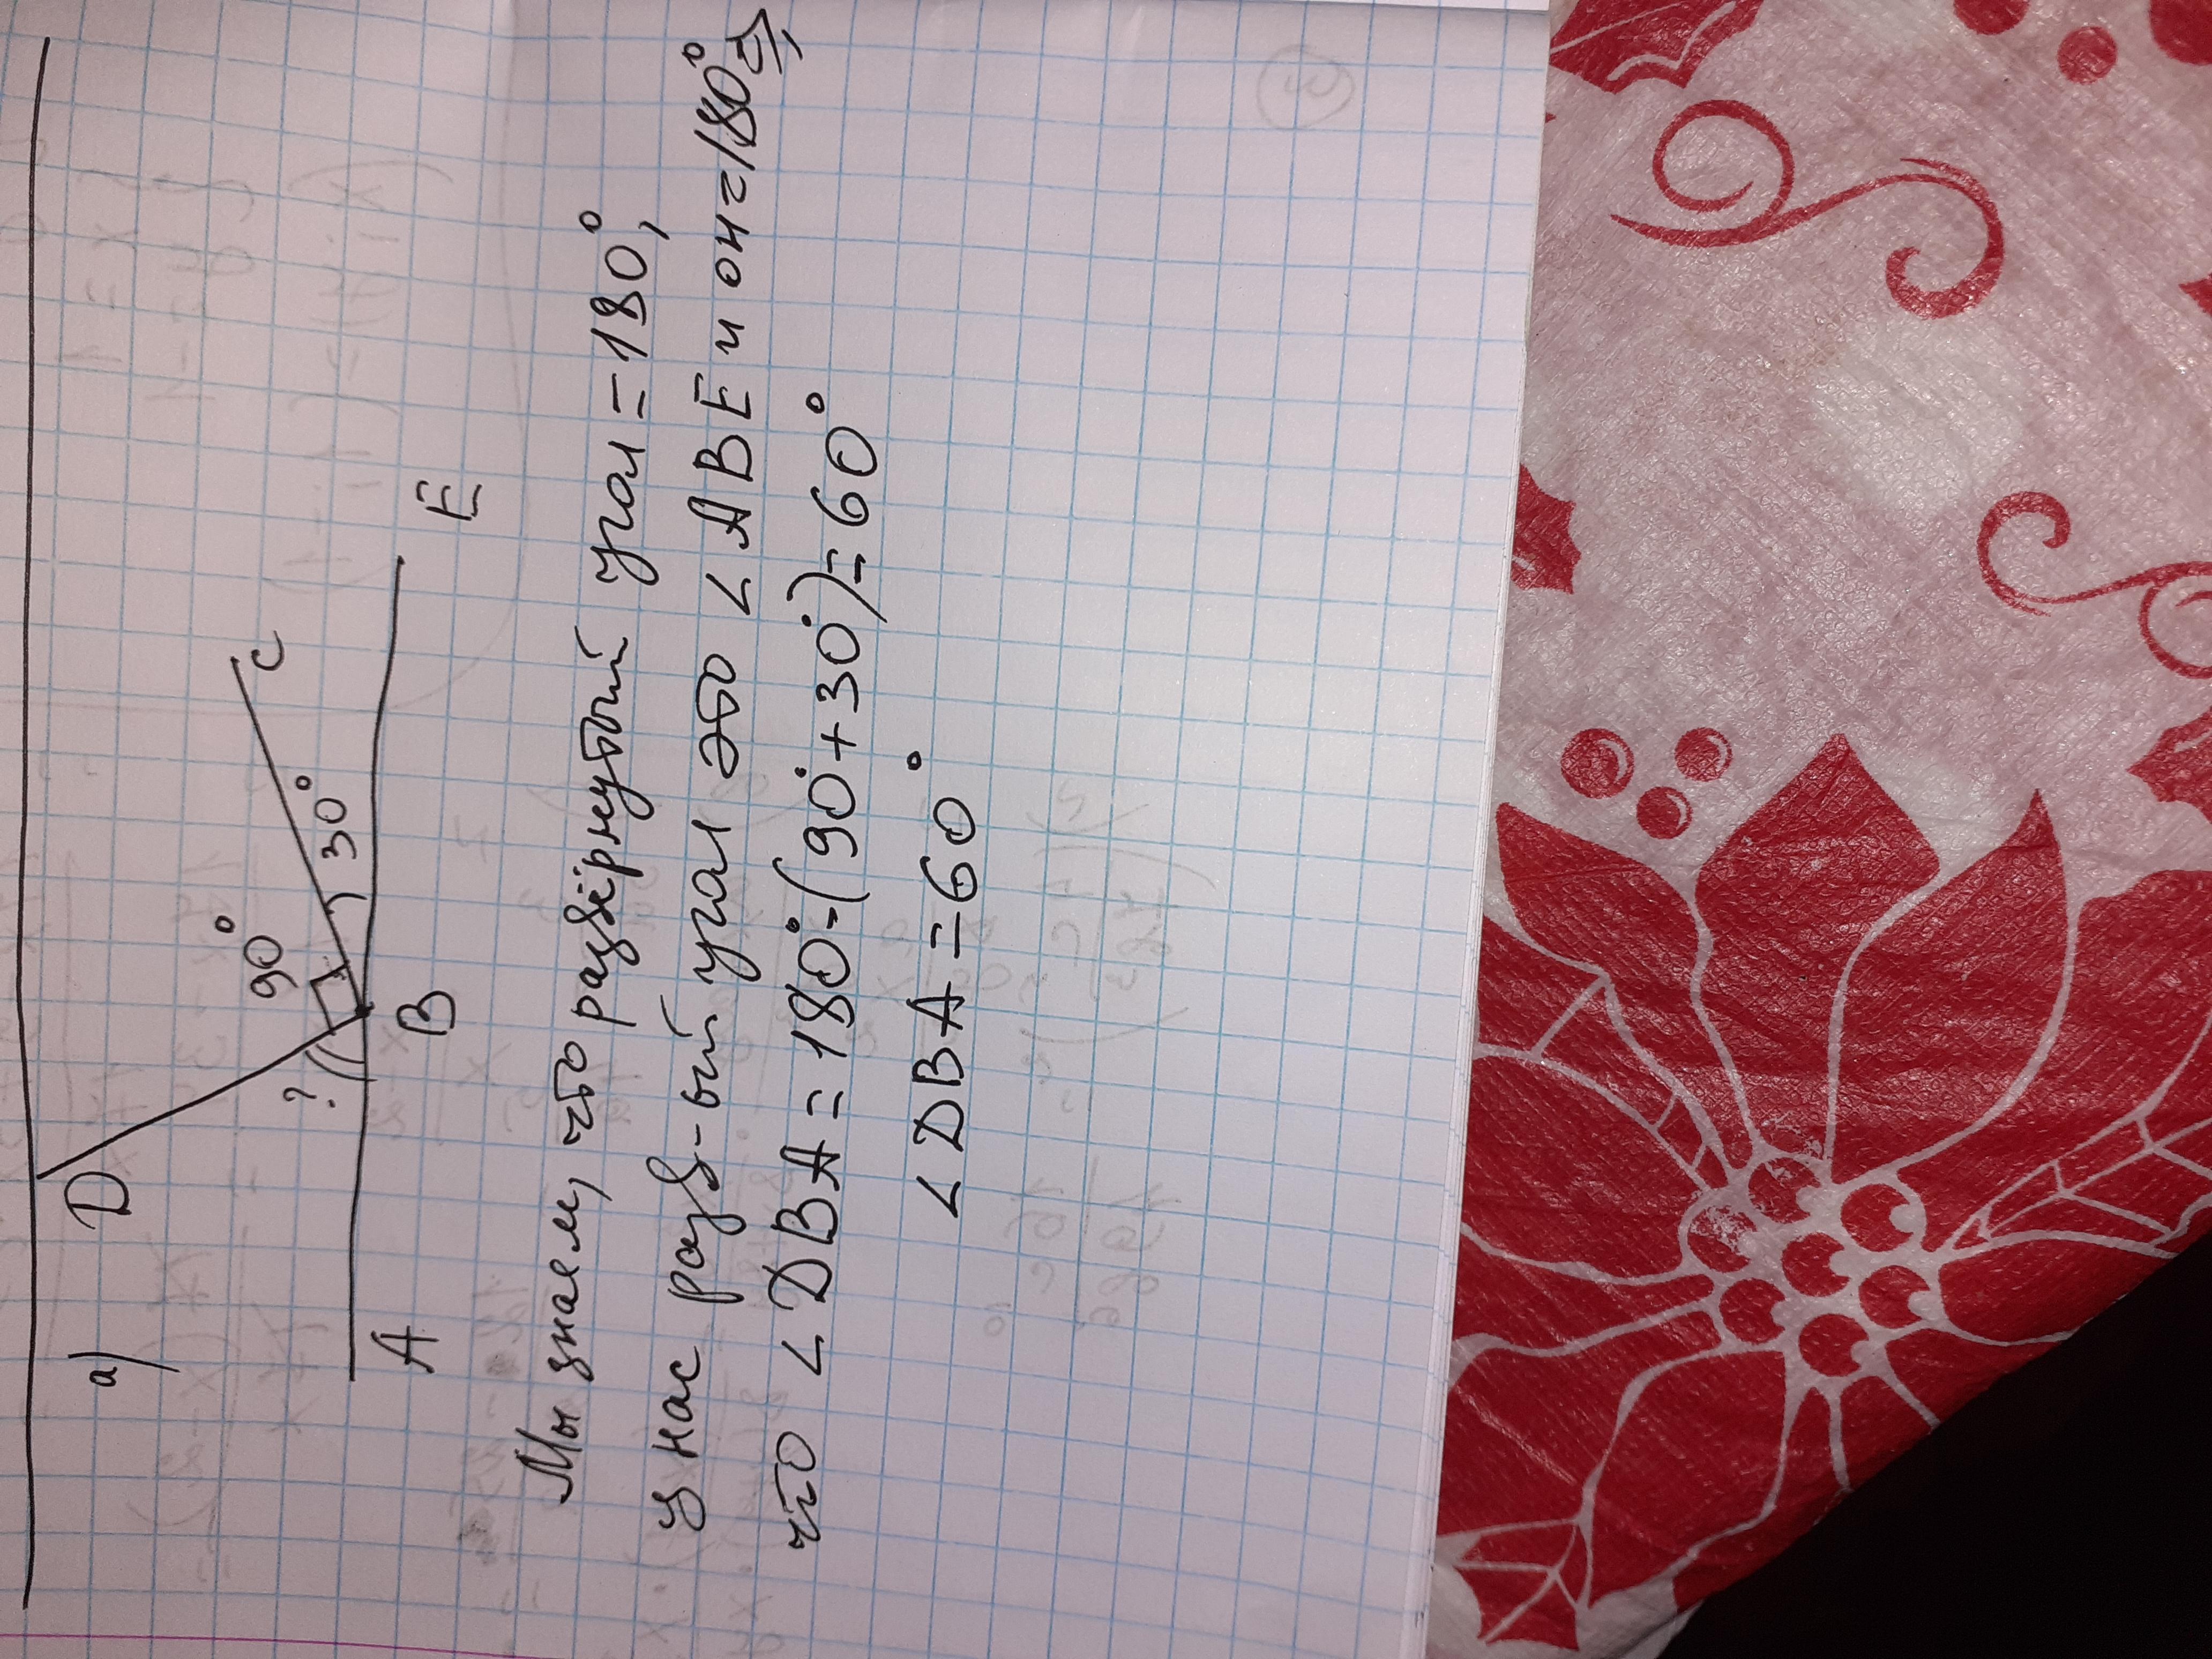 а)
D
90°
C
?
30°
A
B
E
Мы знаем, что развёрнутый угол = 180°,
у нас разв-ый угол это ∠ABE и он = 180° ⇒,
что ∠DBA = 180° - (90° + 30°) = 60°
∠DBA = 60°